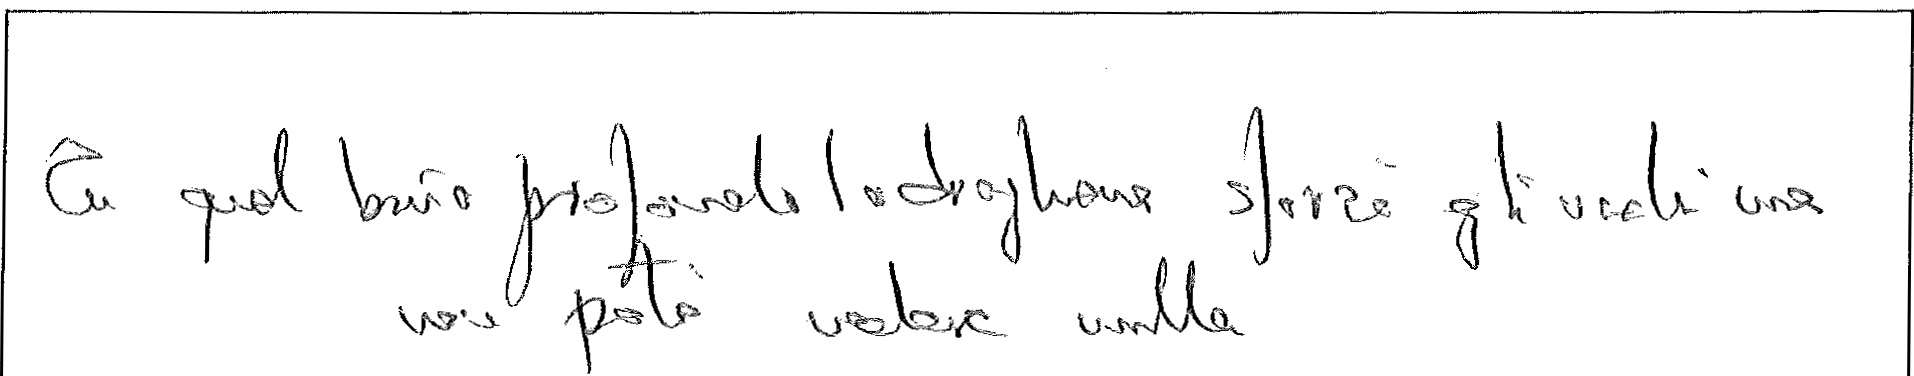 In quel buio profondo la draghona sforzò gli occhi ma
non potò vedere nulla